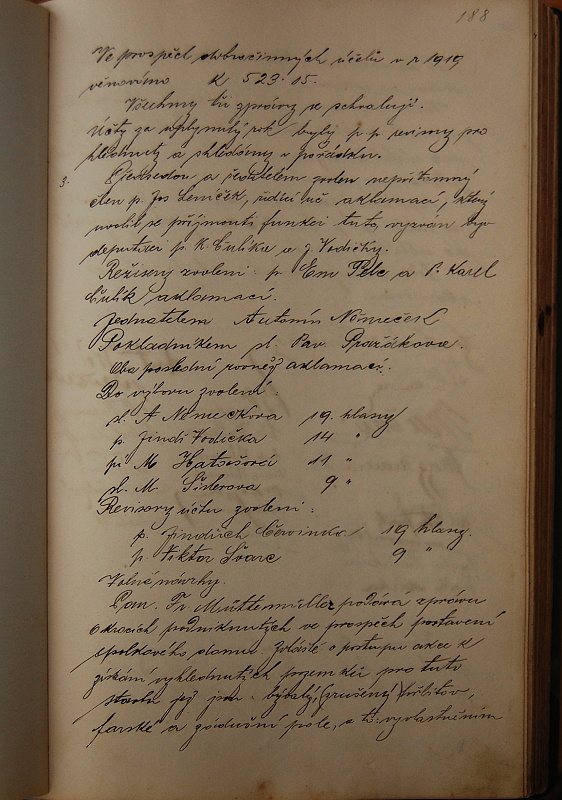 188
Ve prospěch dobročinných účelů v r 1919
věnováno K 523.05.
Všechny tři zprávy se schvalují.
Účty za uplynulý rok byly p.p. revisory pro
hlédnuty a shledány v pořádku.
3. Předsedou a ředitelem zvolen nepřítomný
člen p. Jos Leníček, řídící uč aklamací, který
uvolil se přijmouti funkci tuto, vyzván byv
deputací p. K. Čulíka a J. Vodičky.
Režisery zvoleni: p Em Pelc a P. Karel
Čulík aklamací.
Jednatelem Antonín Němeček
Pokladníkem sl. Pav. Pražákova.
Oba poslední rovněž aklamací.
Do výboru zvoleni:
sl. A Němečkova 19. hlasy
p. Jindř Vodička 14 "
pí M 11 "
sl. M. 9 "
Revisory účtu zvoleni:
p. Jindřich Červinka 19 hlasy.
p. Viktor Švarc 9 "
Volné návrhy.
Pan. Fr. Müttermüller podává zprávu
o krocích podniknutých ve prospěch postavení
spolkového domu. Zvláště o postupu akce k
získání vyhlédnutých pozemků pro tuto
stavbu jež jsou: bývalý, (zrušený) hřbitov,
farské a zádušní pole, a to vyvlastněním